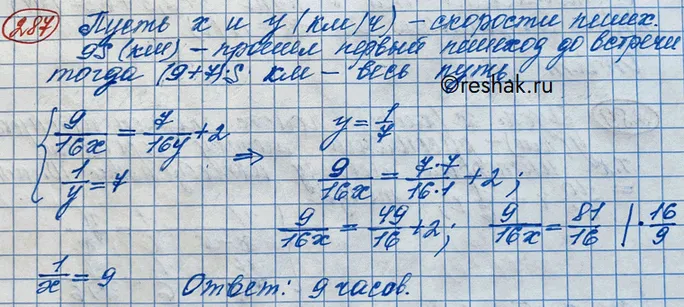 287 Пусть x и y (км/ч) – скорости пешех.
9S (км) – прошел первый пешеход до встречи
тогда (9+7)·S км – весь путь
©reshak.ru
{ 9/16x = 7/16y + 2
1/y = 7
⇒ y = 1/7
9/16x = 7·7/16·1 + 2 ;
9/16x = 49/16 + 2 ; 9/16x = 81/16 | · 16/9
1/x = 9 Ответ: 9 часов.